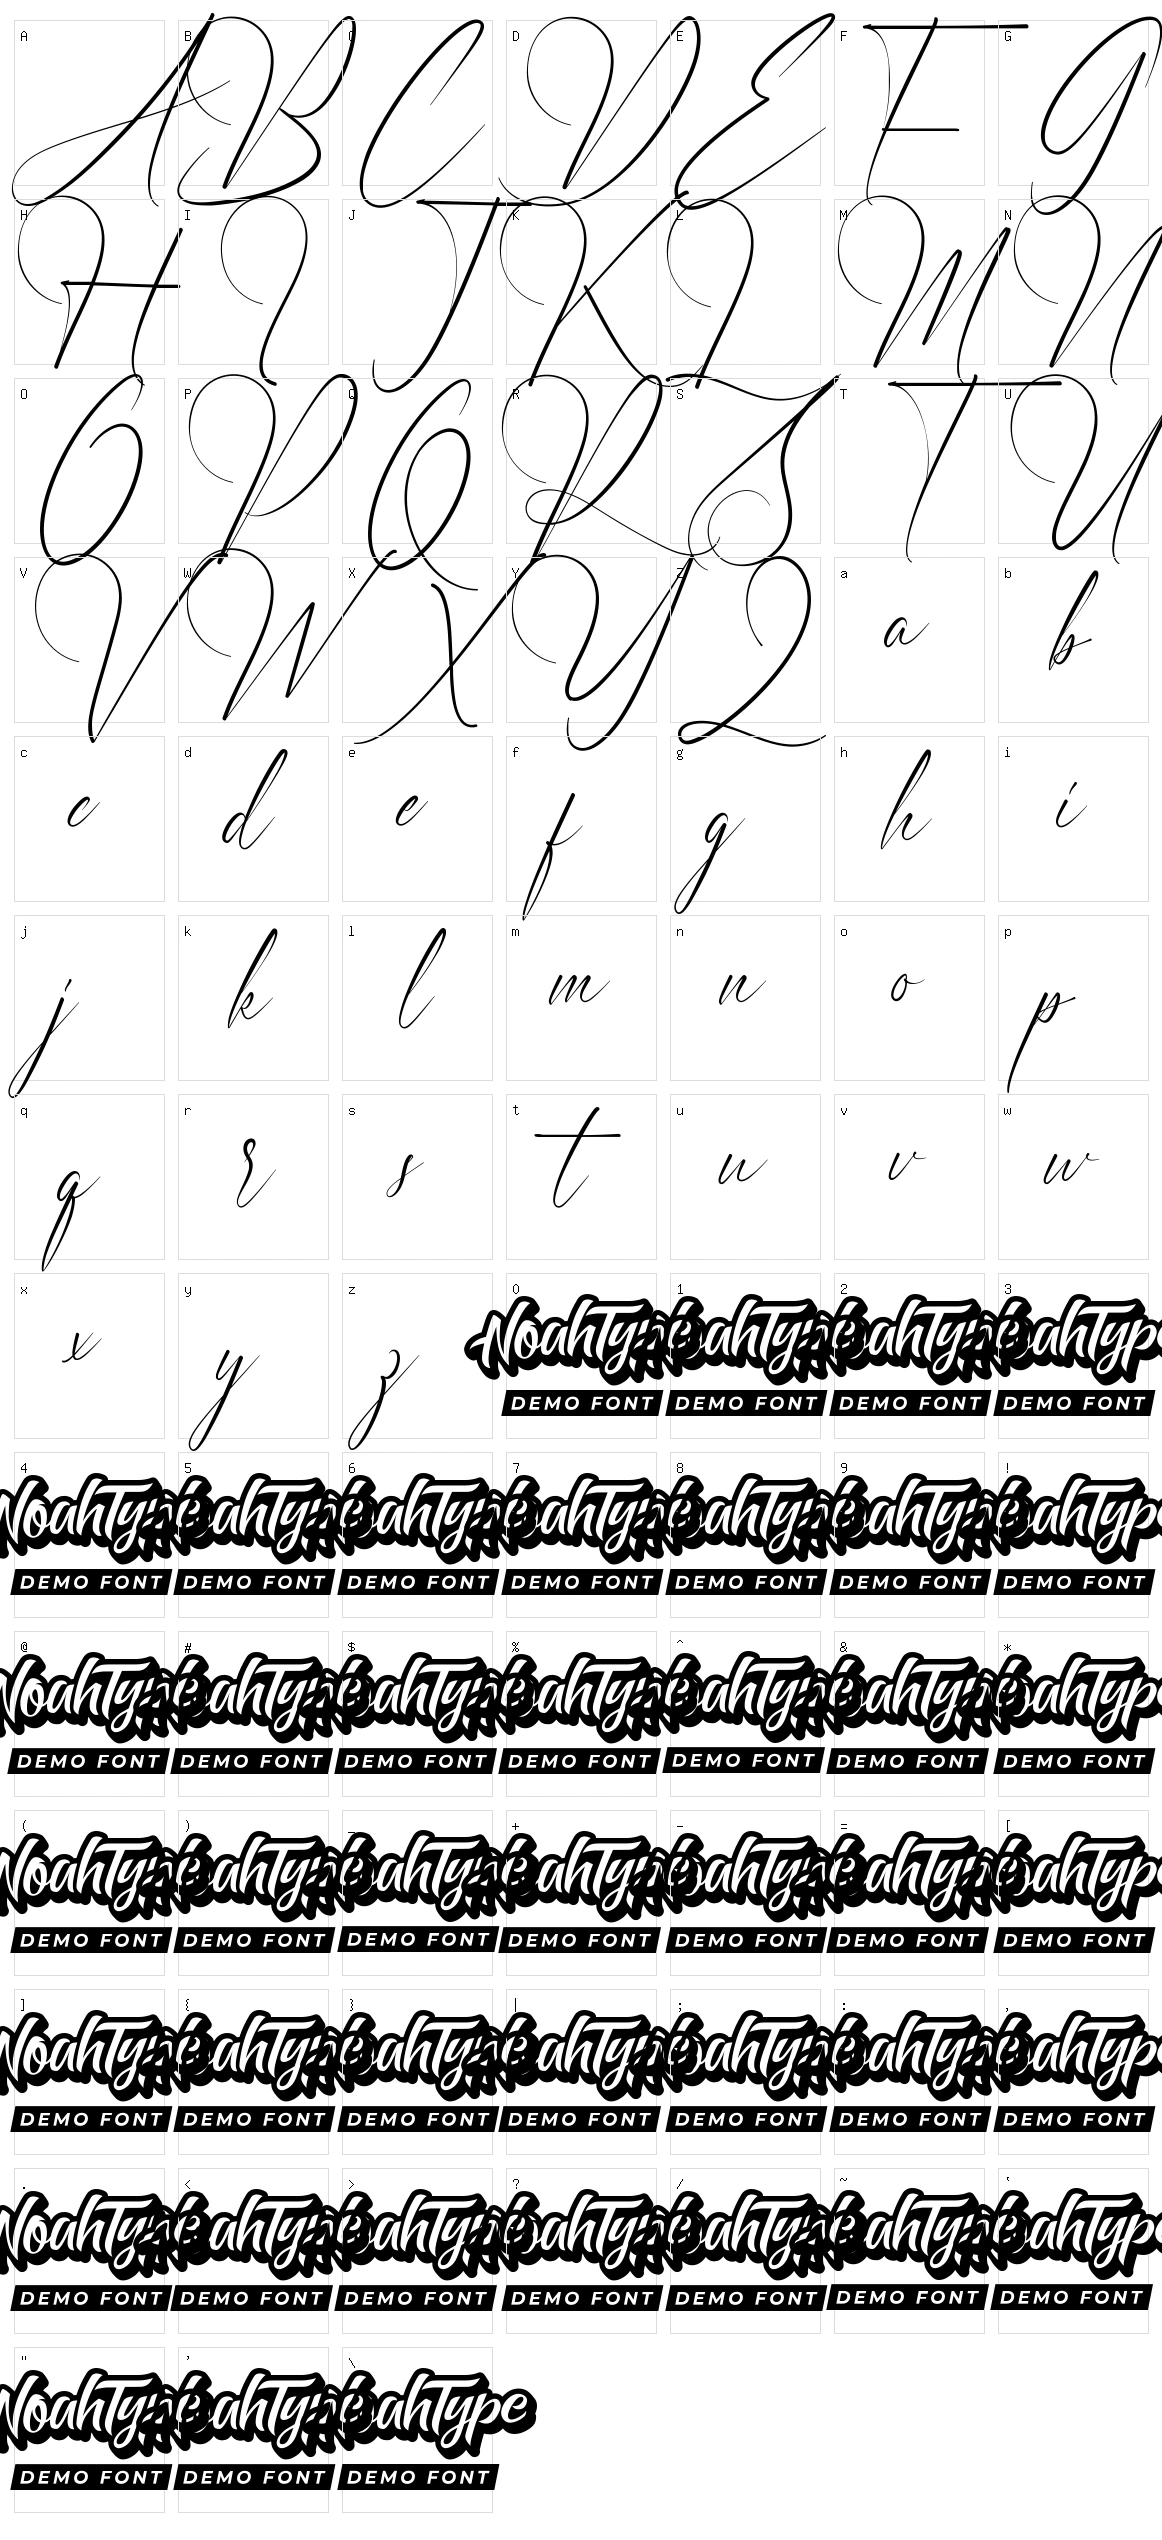 A B C D E F G
A B C D E F G
H I J K L M N
H I J K L M N
O P Q R S T U
O P Q R S T U
V W X Y Z a b
V W X Y Z a b
c d e f g h i
c d e f g h i
j k l m n o p
j k l m n o p
q r s t u v w
q r s t u v w
x y z 0 1 2 3
x y z NoahType NoahType NoahType NoahType
DEMO FONT DEMO FONT DEMO FONT DEMO FONT
4 5 6 7 8 9 !
NoahType NoahType NoahType NoahType NoahType NoahType NoahType
DEMO FONT DEMO FONT DEMO FONT DEMO FONT DEMO FONT DEMO FONT DEMO FONT
@ # $ % ^ & *
NoahType NoahType NoahType NoahType NoahType NoahType NoahType
DEMO FONT DEMO FONT DEMO FONT DEMO FONT DEMO FONT DEMO FONT DEMO FONT
( ) _ + - = [
NoahType NoahType NoahType NoahType NoahType NoahType NoahType
DEMO FONT DEMO FONT DEMO FONT DEMO FONT DEMO FONT DEMO FONT DEMO FONT
] { } | ; : ,
NoahType NoahType NoahType NoahType NoahType NoahType NoahType
DEMO FONT DEMO FONT DEMO FONT DEMO FONT DEMO FONT DEMO FONT DEMO FONT
. < > ? / ~ `
NoahType NoahType NoahType NoahType NoahType NoahType NoahType
DEMO FONT DEMO FONT DEMO FONT DEMO FONT DEMO FONT DEMO FONT DEMO FONT
" ' \
NoahType NoahType NoahType
DEMO FONT DEMO FONT DEMO FONT